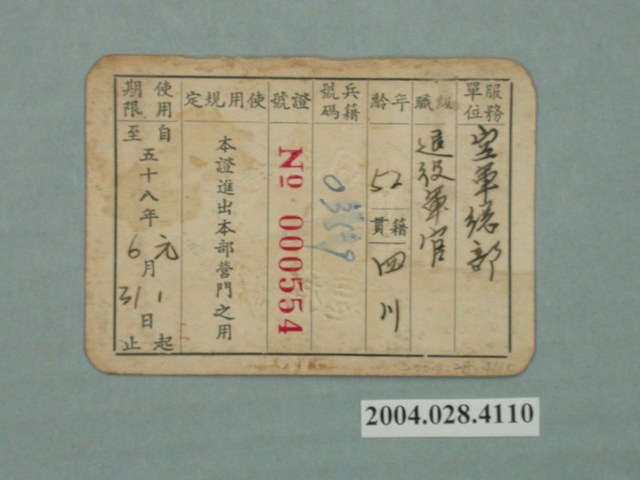 服務單位
空軍總部
級職
退役軍官
年齡
52
籍貫
四川
兵籍號碼
證號
No 000554
使用規定
本證進出本部營門之用
使用期限
自五十八年元月1日起
至6月31日止
2004.028.4110